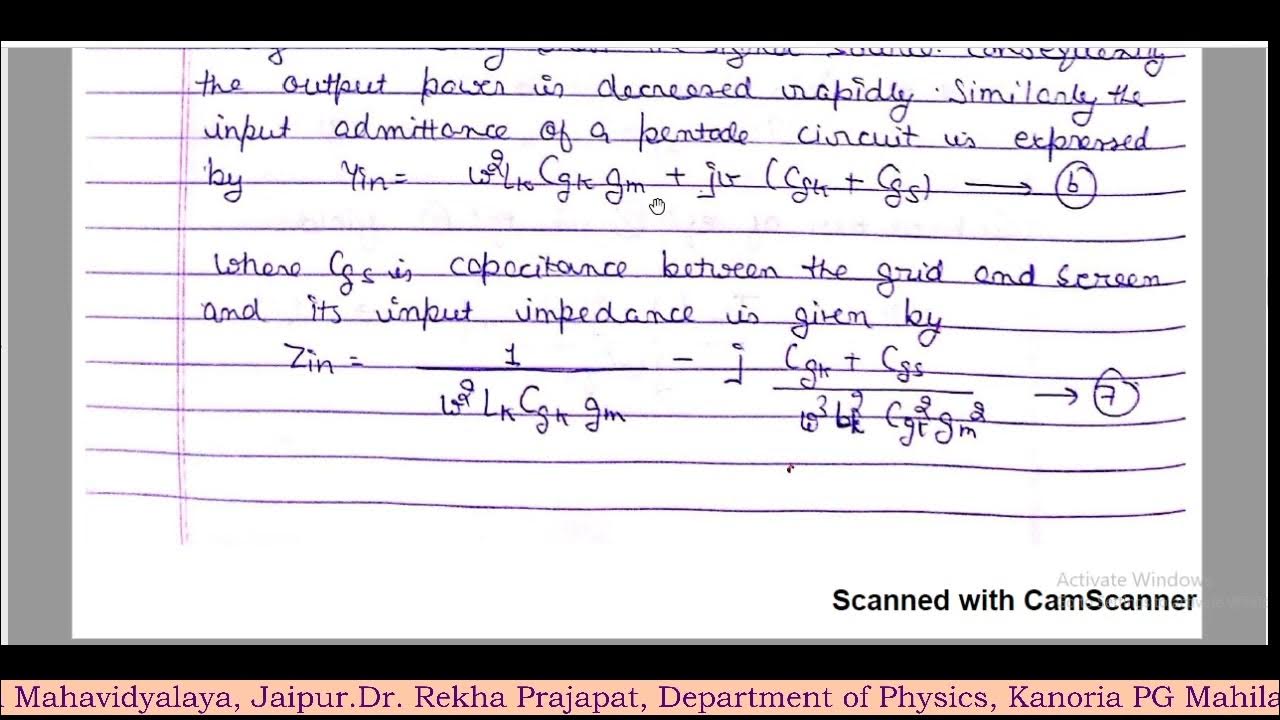 the signal source. Consequently
the output power is decreased rapidly. Similarly the
input admittance of a pentode circuit is expressed
by Yin = ω²Lk Cgk gm + jω (Cgk + Cgs) → 6
where Cgs is capacitance between the grid and screen
and its input impedance is given by
Zin = 1 / ω² Lk Cgk gm − j Cgk + Cgs / ω³ Lk² Cgk² gm² → 7
Activate Windows
Scanned with CamScanner
Mahavidyalaya, Jaipur.Dr. Rekha Prajapat, Department of Physics, Kanoria PG Mahila